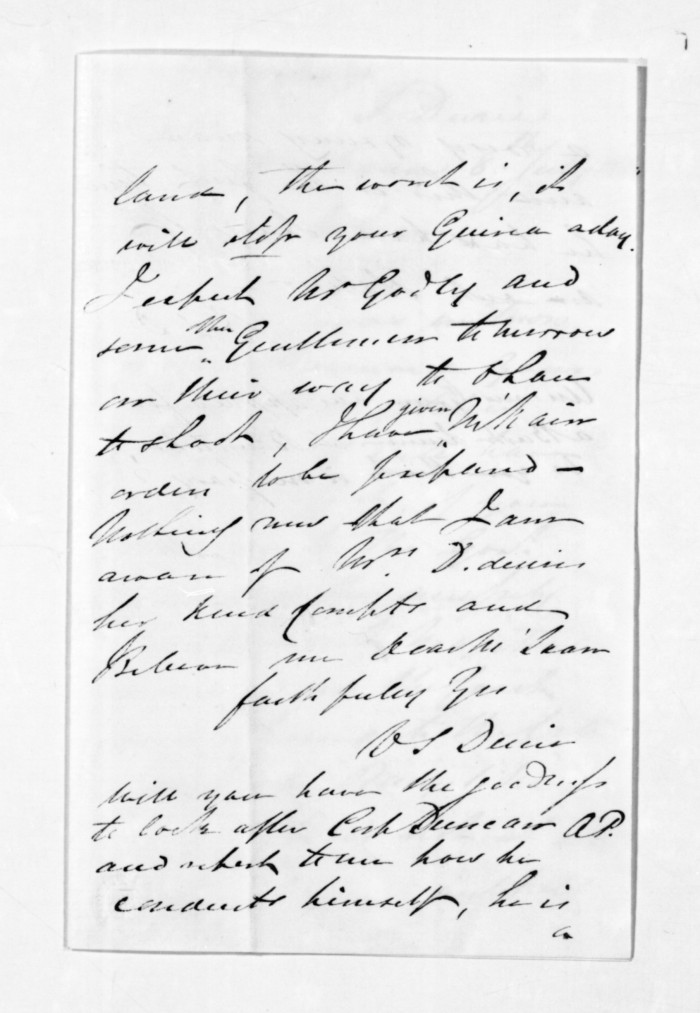 land, the worst is, it
will stop your Guinea a day.
I expect Mr Godly and
some other Gentlemen tomorrow
on their way to
to shoot, I have given McKain
orders to be prepared —
Nothing new that I am
aware of Mrs D. desires
her kind Compts and
Believe me Dear McLean
faithfully Yrs
D S Durie
Will you have the goodness
to look after Corp Duncan A.P.
and report to me how he
conducts himself, he is
a